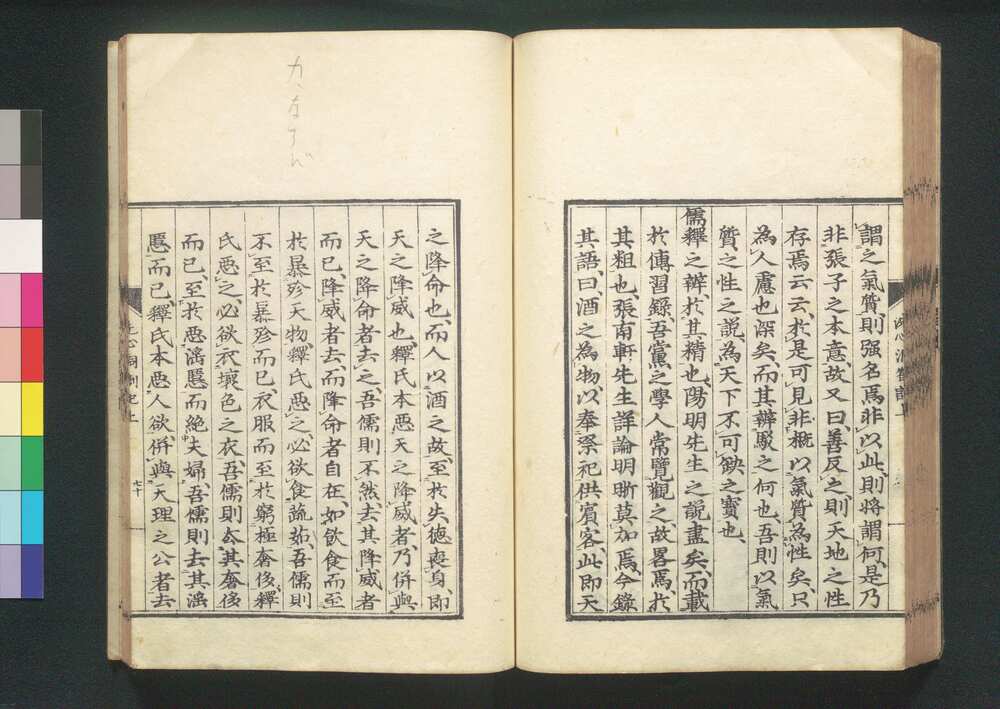 謂之氣質、則强名焉非以此、則將謂何、是乃
非張子之本意故又曰、善反之則天地之性
存焉云云、於是可見非概以氣質為性矣、只
為人慮也深矣、而其辨駁之何也、吾則以氣
質之性之説、為天下不可缺之寶也、
儒釋之辨、於其精也、陽明先生之說盡矣、而載
於傳習錄、吾黨之學人常覽觀之、故畧焉、於
其粗也、張南軒先生詳論明晰莫加焉、今錄
其語、曰、酒之為物、以奉祭祀供賓客、此即天
之降命也、而人以酒之故、至於失德喪身、即
天之降威也、釋氏本惡天之降威者、乃併與
天之降命者去之、吾儒則不然、去其降威者
而已、降威者去、而降命者自在、如飲食而至
於暴殄天物、釋氏惡之、必欲食蔬茹、吾儒則
不至於暴殄而已、衣服而至於窮極奢侈、釋
氏惡之、必欲衣壞色之衣、吾儒則去其奢侈
而已、至於惡淫慝而絶夫婦、吾儒則去其淫
慝而已、釋氏本惡人欲、併與天理之公者去
七十